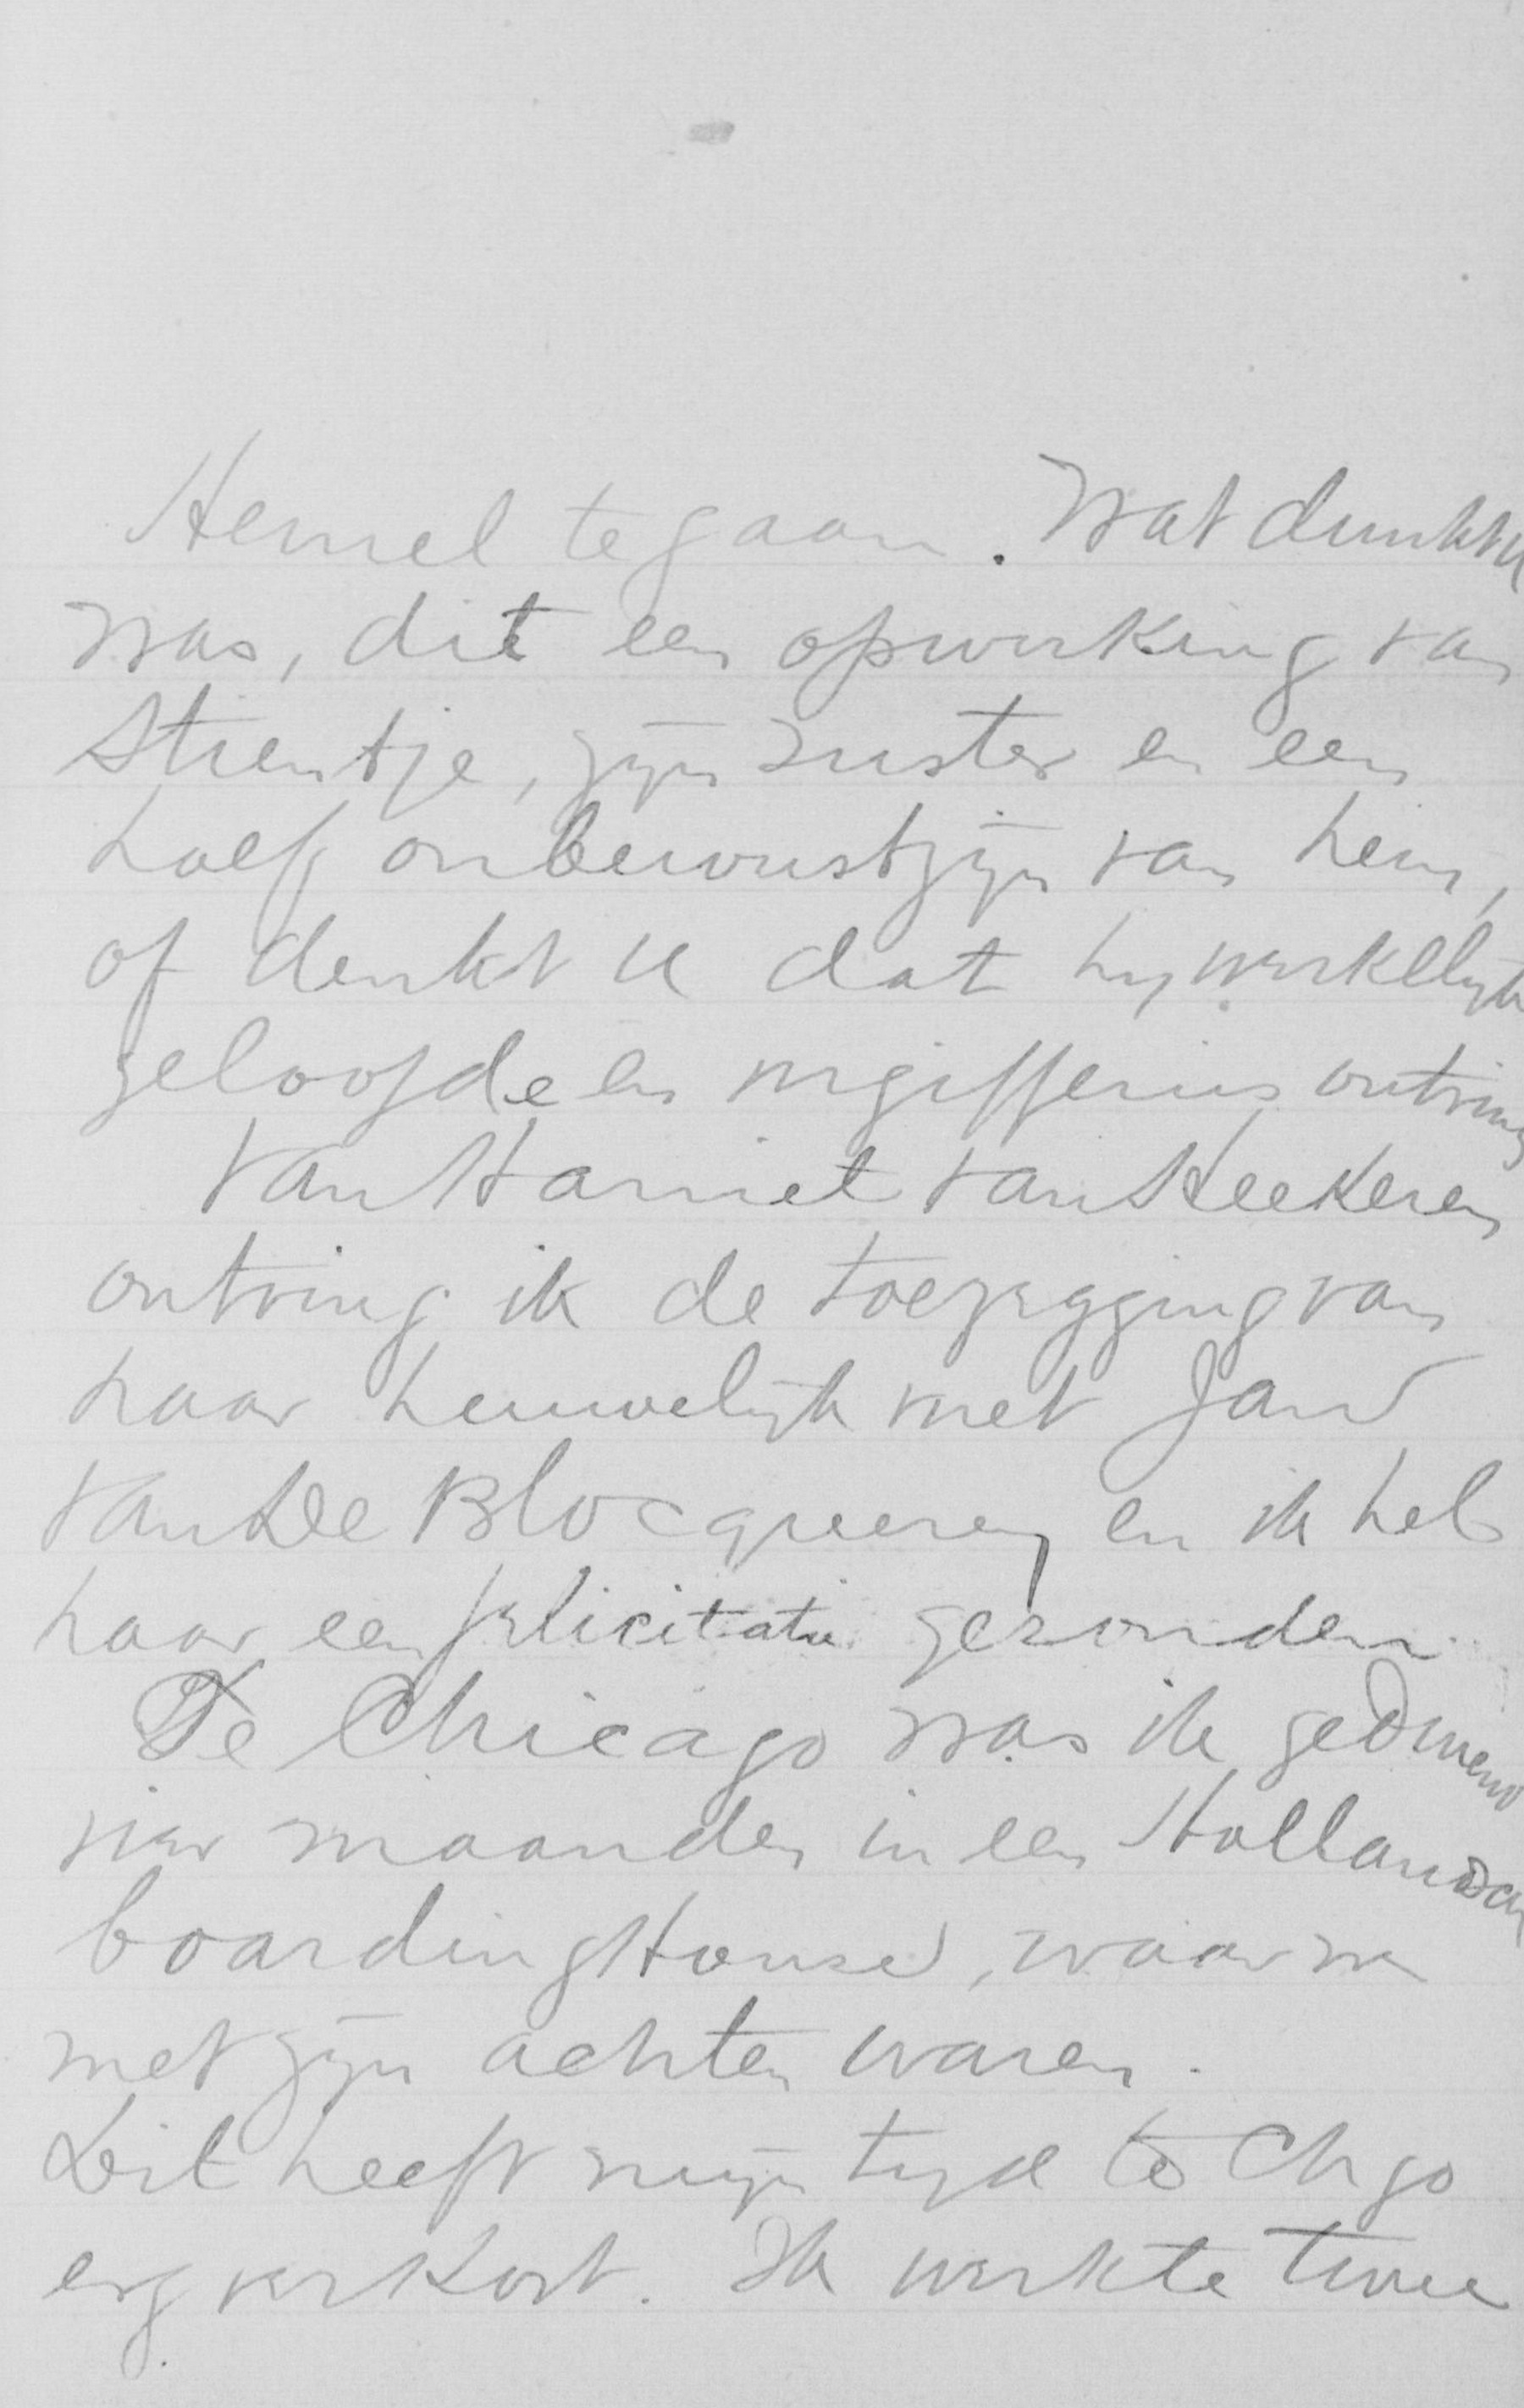 Hemel te gaan. Wat dunkt u
was, dit een opwerking van
Stientje, zijn zuster en een
half onbewustzijn van hem,
of denkt u dat hij werkelijk
geloofde en vergiffenis ontving
Van Harriet van Heekeren
ontving ik de toezegging van
haar heuwelijk met
en ik heb
haar een felicitatie gezonden
Te Chicago was ik gedurend
vier maanden in een Hollandsch
boarding House, waar we
met zijn achten waren.
Dit heeft mijn tijd te Chgo
erg verkort. Ik werkte twee